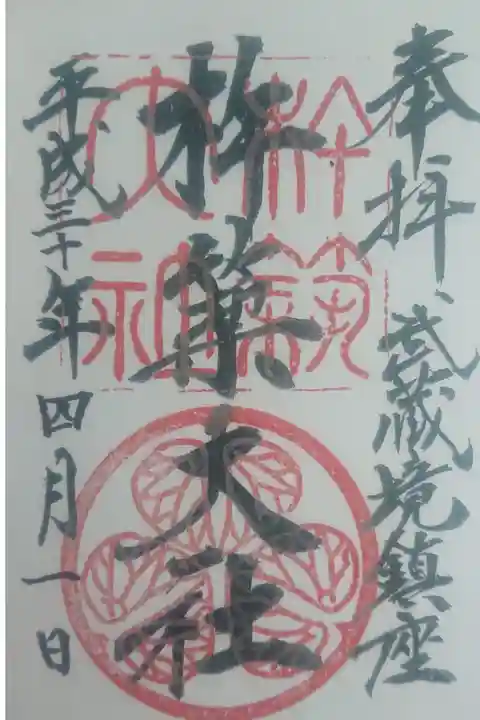 奉拝 武蔵境鎮座
杵築大社
平成三十年四月一日
杵築
大社